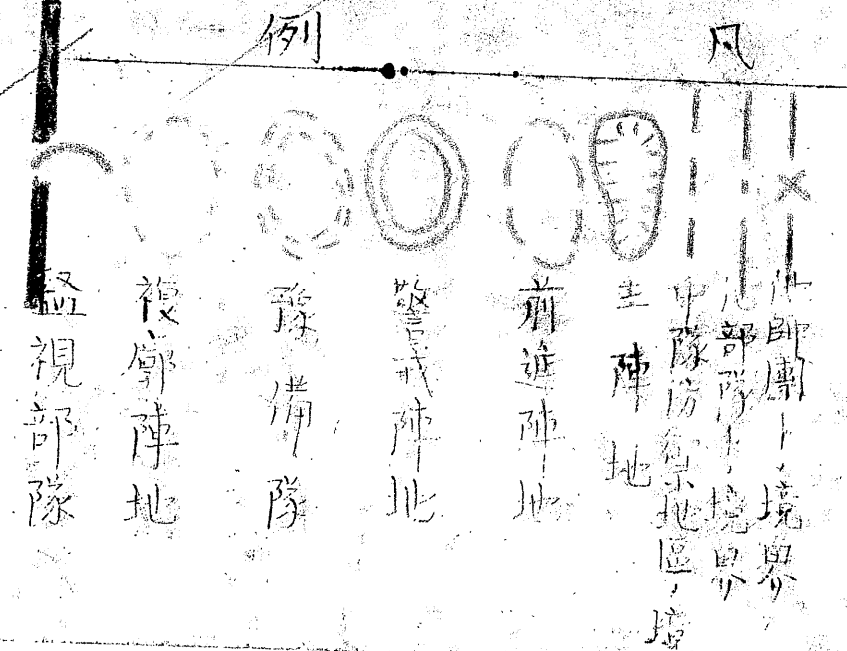 凡例
他師團トノ境界
他部隊トノ境界
中隊防禦地區ノ境
主陣地
前進陣地
警戒陣地
豫備隊
複廓陣地
監視部隊